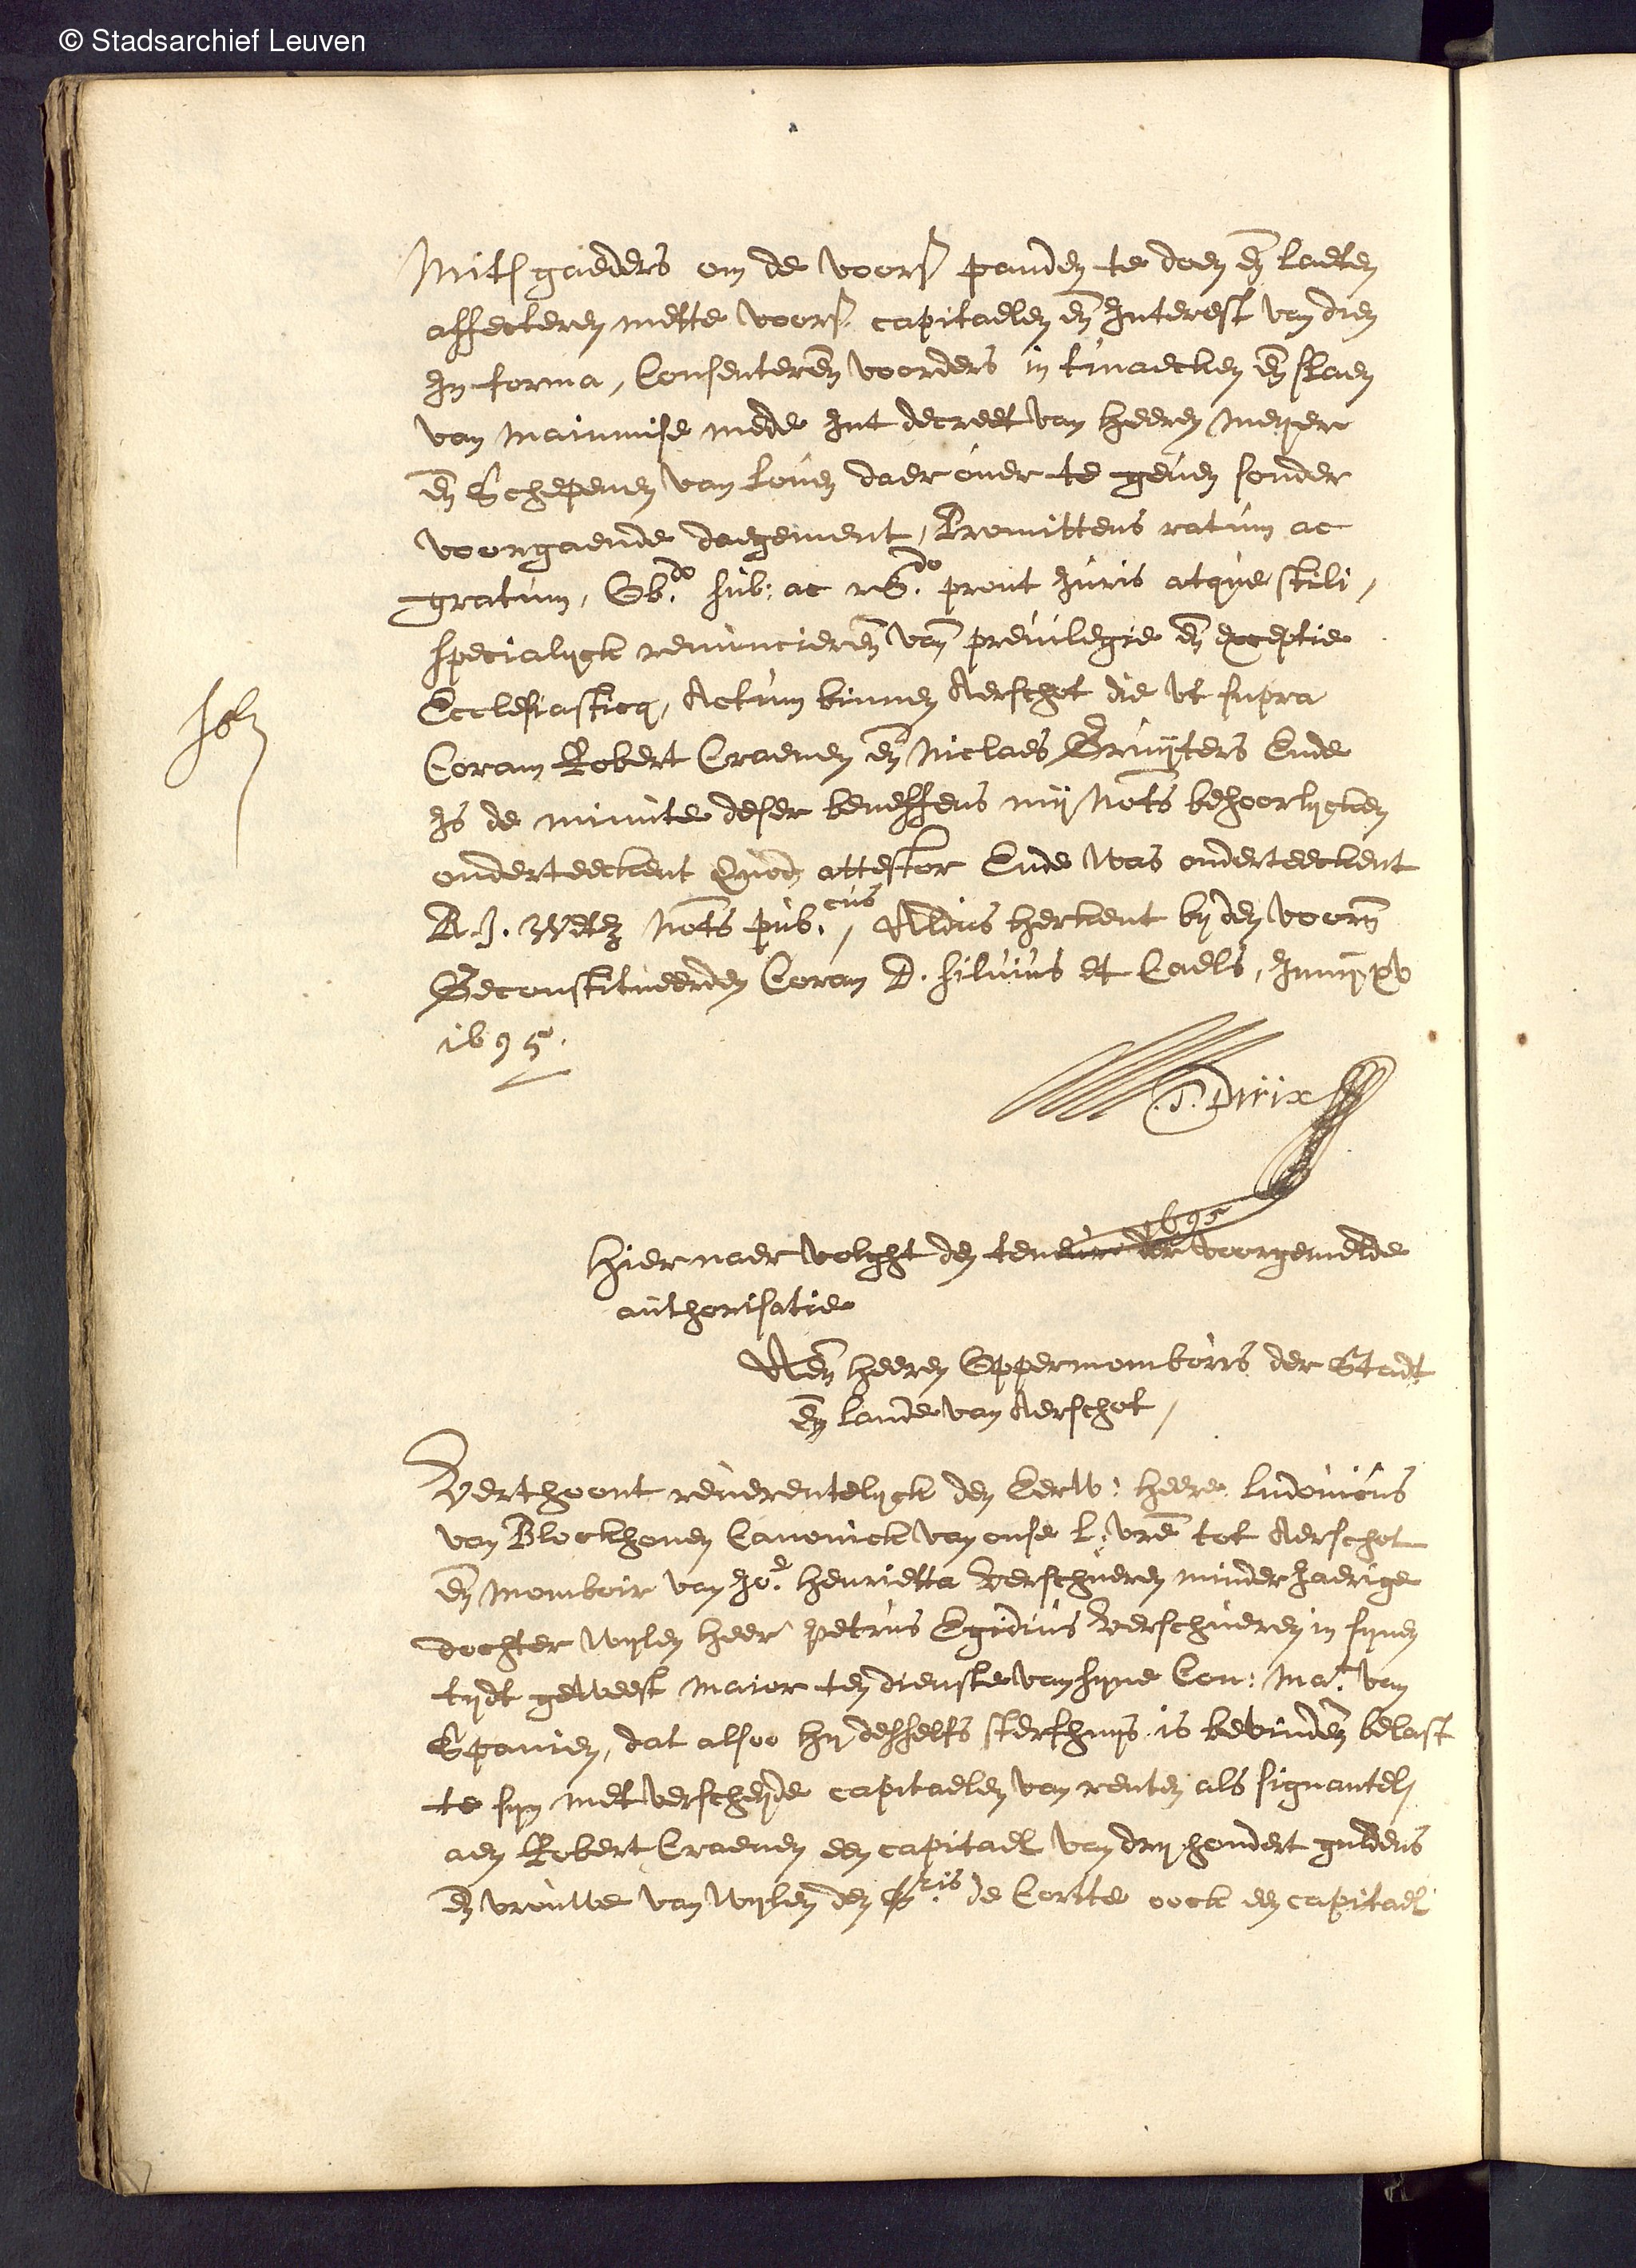 © Stadsarchief Leuven
Mitsgaeders om de voors panden te doen en laeten
affecteren mette voors. capitaelen en Interest van dien
In forma, Consenteren voorders in tmaecken en slaen
van mainmise mede Int decreet van heeren meyer
en Schepenen van Loven daer over te geven sonder
voorgaende daegement, Promittens ratum ac
gratum, Ob.do sub: ac r do prout Juris atque stili,
specialyck renuncieren van previlegie en exceptie
Ecclesiasticq, Actum binnen Aerschot die ut supra
Coram Robert Craenen en Niclaes Bruyters Ende
Is de minute deser beneffens mij Nots behoorlycken
onderteeckent Quod attestor Ende was onderteeckent
Nots pub.cus, Aldus herkent by den voorn
Geconstitueerden Coram D. Silvius et Caels, Junij xv
1695.
J. Dirix
1695
Hier naer volght den teneur der voorgemelde
authorisatie
Aen heeren Oppermomboirs der Stadt
en Lande van Aerschot,
Verthoont reverentelyck den Eerw: heere Ludovicus
van Blockhoven Canonick van onse L: vre tot Aerschot
en momboir van Jo.e Henrietta Verschueren minder Jaerige
dochter wylen heer Petrus Egidius Verschueren in synen
tydt geweest Maior ten dienste van syne Con: Ma.t van
Spanien, dat alsoo hy desselfs sterfhuys is bevinden belast
te syn met verscheyde capitaelen van renten als signantel
aen Robert Craenen een capitael van dry hondert guldens
en vrouwe van wylen den de Cortte oock een capitael